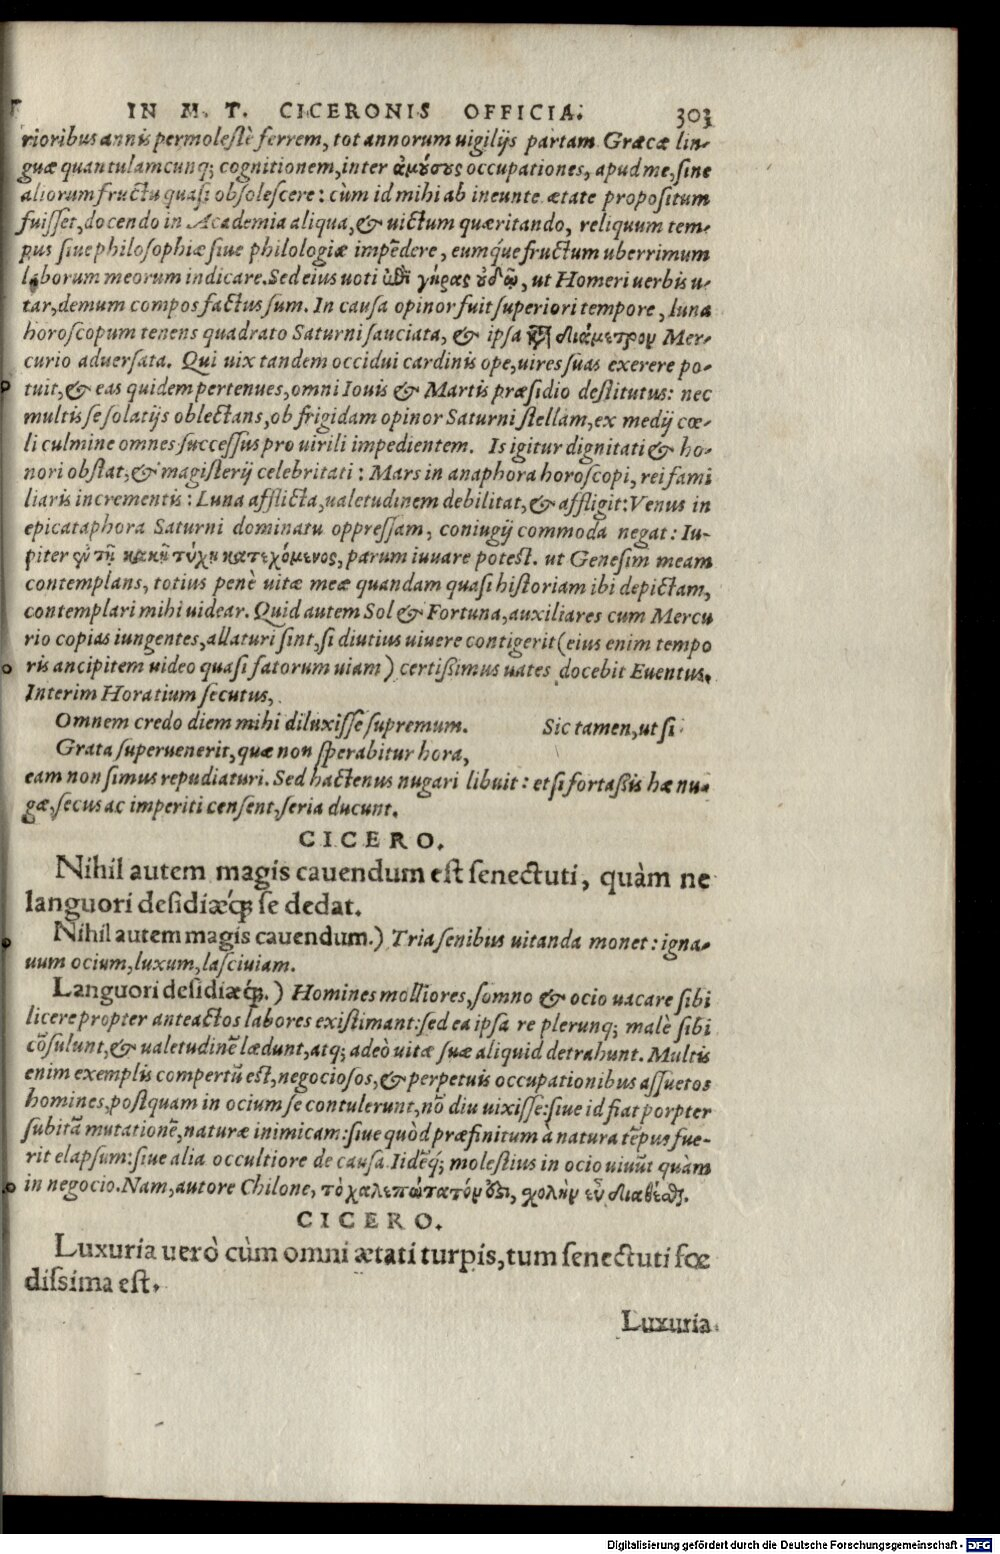 IN M. T. CICERONIS OFFICIA. 303
rioribus annis permolestè ferrem, tot annorum uigilijs partam Græcæ lin-
guæ quantulamcunq; cognitionem, inter ἀμούσους occupationes, apud me, sine
aliorum fructu quasi obsolescere: cùm id mihi ab ineunte ætate propositum
fuisset, docendo in Academia aliqua, & uictum quæritando, reliquum tem-
pus siue philosophiæ siue philologiæ impēdere, eumq́ue fructum uberrimum
laborum meorum indicare. Sed eius uoti ἐπὶ γήραος οὐδῷ, ut Homeri uerbis u-
tar, demum compos factus sum. In causa opinor fuit superiori tempore, luna
horoscopum tenens quadrato Saturni sauciata, & ipsa διάμετρον Mer-
curio aduersata. Qui uix tandem occidui cardinis ope, uires suas exerere po-
tuit, & eas quidem pertenues, omni Iouis & Martis præsidio destitutus: nec
multis se solatijs oblectans, ob frigidam opinor Saturni stellam, ex medij cœ-
li culmine omnes successus pro uirili impedientem. Is igitur dignitati & ho-
nori obstat, & magisterij celebritati: Mars in anaphora horoscopi, rei fami
liaris incrementis: Luna afflicta, ualetudinem debilitat, & affligit: Venus in
epicataphora Saturni dominatu oppressam, coniugij commoda negat: Iu-
piter ἐν τῇ κακῇ τύχῃ κατεχόμενος, parum iuuare potest. ut Genesim meam
contemplans, totius penè uitæ meæ quandam quasi historiam ibi depictam,
contemplari mihi uidear. Quid autem Sol & Fortuna, auxiliares cum Mercu
rio copias iungentes, allaturi sint, si diutius uiuere contigerit (eius enim tempo
ris ancipitem uideo quasi fatorum uiam) certißimus uates docebit Euentus.
Interim Horatium secutus,
Omnem credo diem mihi diluxisse supremum. Sic tamen, ut si
Grata superuenerit, quæ non sperabitur hora,
eam non simus repudiaturi. Sed hactenus nugari libuit: etsi fortaßis hæ nu-
gæ, secus ac imperiti censent, seria ducunt.
CICERO.
Nihil autem magis cauendum est senectuti, quàm ne
languori desidiæq́; se dedat.
Nihil autem magis cauendum.) Tria senibus uitanda monet: igna-
uum ocium, luxum, lasciuiam.
Languori desidiæq́;.) Homines molliores, somno & ocio uacare sibi
licere propter anteactos labores existimant: sed ea ipsa re plerunq; malè sibi
cōsulunt, & ualetudinē lædunt, atq; adeò uitæ suæ aliquid detrahunt. Multis
enim exemplis compertū est, negociosos, & perpetuis occupationibus assuetos
homines, postquam in ocium se contulerunt, nō diu uixisse: siue id fiat porpter
subitā mutationē, naturæ inimicam: siue quòd præfinitum à natura tēpus fue-
rit elapsum: siue alia occultiore de causa. Iidēq́; molestius in ocio uiuūt quàm
in negocio. Nam, autore Chilone, τὸ χαλεπώτατόν ἐστι, σχολὴν εὖ διαθέσθαι.
CICERO.
Luxuria uerò cùm omni ætati turpis, tum senectuti fœ
dissima est.
Luxuria
Digitalisierung gefördert durch die Deutsche Forschungsgemeinschaft - DFG